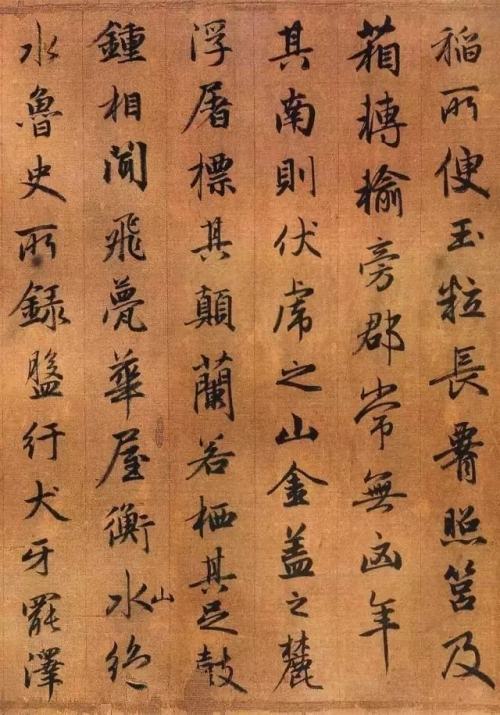 稻所便玉粒長腰照筥及
箱轉輸旁郡常無凶年
其南則伏虎之山金盖之麓
浮屠標其顛蘭若栖其足鼓
鍾相聞飛甍華屋衡水山絕
水魯史所録盤紆犬牙罷澤